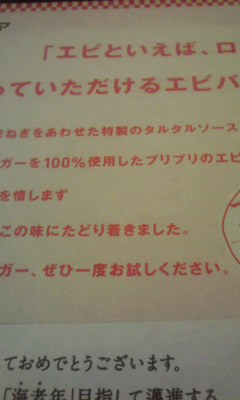 ア
「エビといえば、ロ
っていただけるエビバ
まねぎをあわせた特製のタルタルソース
ガーを100%使用したプリプリのエビ
を惜しまず
この味にたどり着きました。
ガー、ぜひ一度お試しください。
ておめでとうございます。
「海老年」目指して邁進する